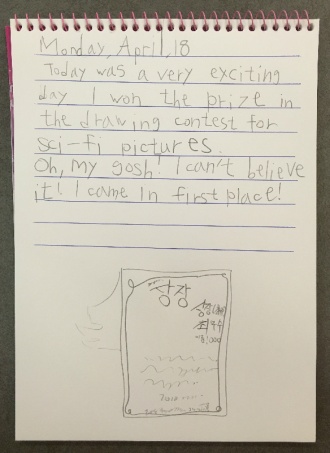 Monday, April, 18
Today was a very exciting
day I won the prize in
the drawing contest for
sci-fi pictures.
Oh, my gosh! I can't believe
it! I came in first place!
상장
최우수